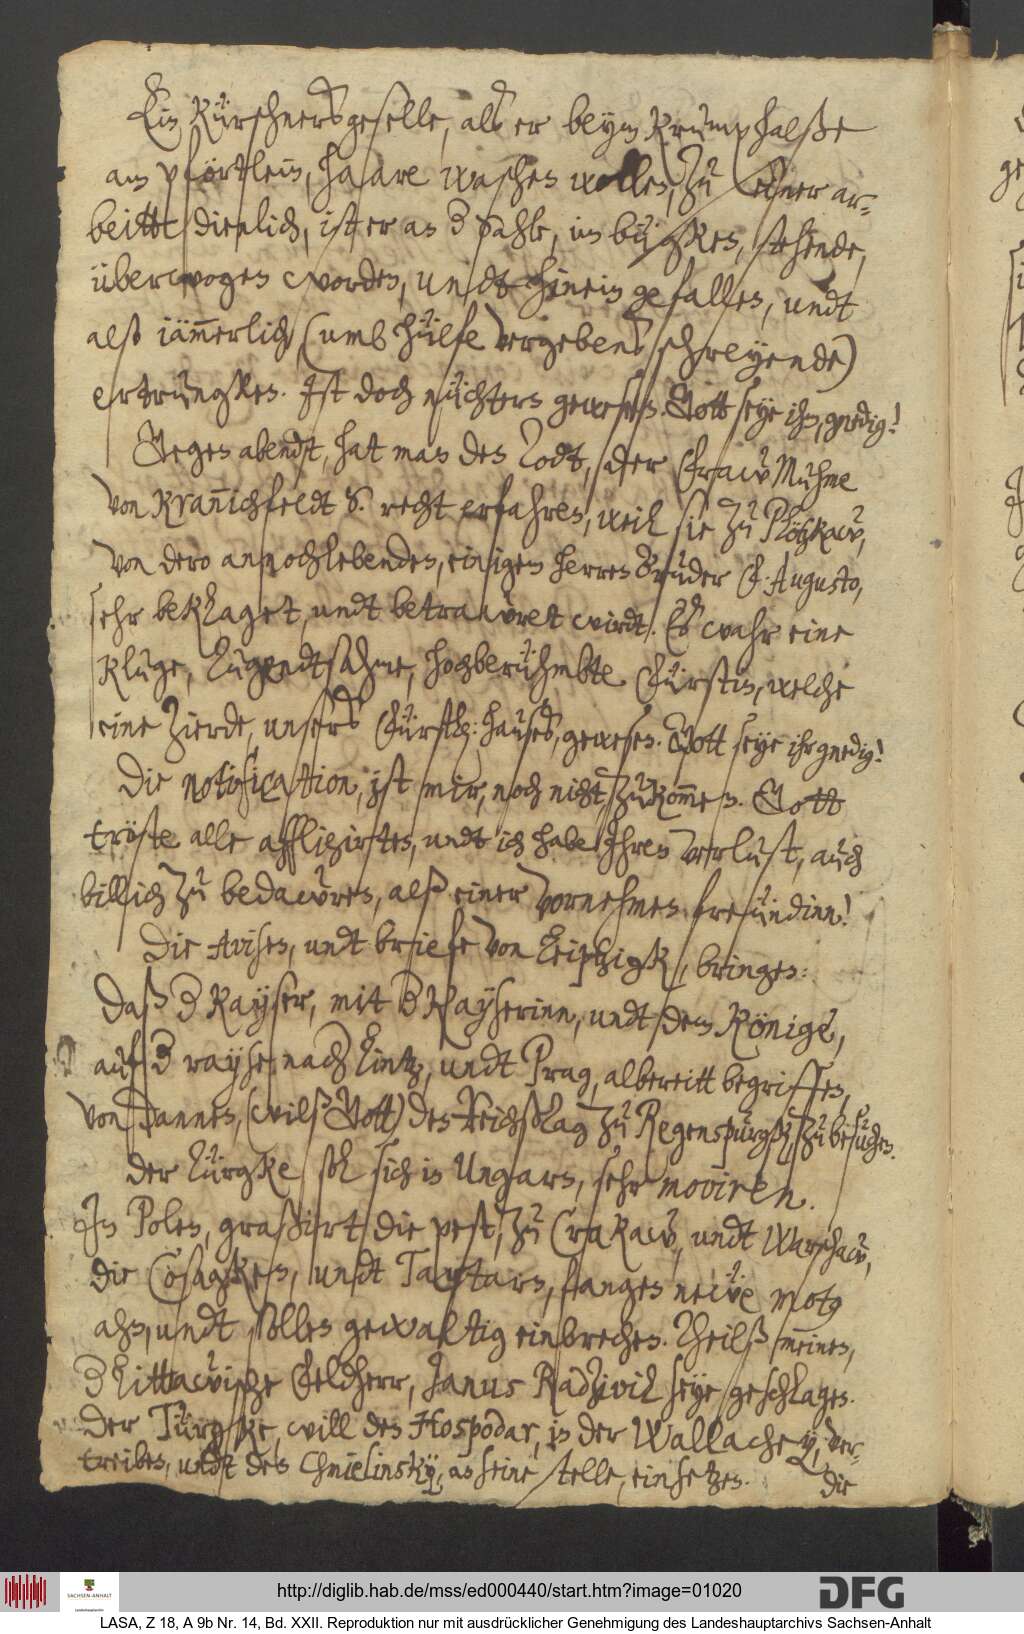 Ein Kürschnersgeselle, alß er beym Krumphalße
am pförtlein, haare waschen wollen, zu seiner ar-
beitt dienlich, ist er am pfahle, im bügken, stehende,
überwogen worden, undt hinein gefallen, undt
alß iämerlich (umb hülfe vergebens schreyende)
ertrungken. Ist doch nüchtern gewesen. Gott seye ihm, gnedig!
Gegen abendt, hat man den Todt, der Fraw Muhme
von Kranichfeldt S. recht erfahren, weil sie zu Plötzkaw,
von dero annoch lebenden, einigen herren Bruder F. Augusto,
sehr beklaget, undt betrawret wirdt. Es wahr eine
kluge, tugendtsahme, hochberühmbte Fürstin, welche
eine zierde, unsers Fürstl: hauses, gewesen. Gott seye ihr gnedig!
Die notification, ist mir, noch nicht, zukommen. Gott
tröste alle affligirten, undt ich habe Ihren verlust, auch
billich zu bedawren, alß einer vornehmen freundinn!
Die Avisen, undt briefe von Leiptzigk, bringen:
Daß der Kayser, mit der Kayserinn, undt dem Könige,
auf der rayse nach Lintz, undt Prag, albereitt begriffen,
von dannen, (wilß Gott) den Reichßtag zu Regenspurgk, zu besuchen.
der Türgke sol sich in Ungarn, sehr moviren.
In Polen, graßirt die pest, zu Crakaw, undt Warschaw,
die Cosagken, undt Tartarn, fangen newe motus
ahn, undt sollen gewaltig einbrechen. Theilß meinen,
der Littawische Feldherr, Janus Radzivil seye geschlagen.
Der Türgke, will den Hospodar, in der Wallachey, ver-
treiben, undt den Chmielinsky, an seine stelle, einsetzen.
die
http://diglib.hab.de/mss/ed000440/start.htm?image=01020
DFG
SACHSEN-ANHALT
LASA, Z 18, A 9b Nr. 14, Bd. XXII. Reproduktion nur mit ausdrücklicher Genehmigung des Landeshauptarchivs Sachsen-Anhalt